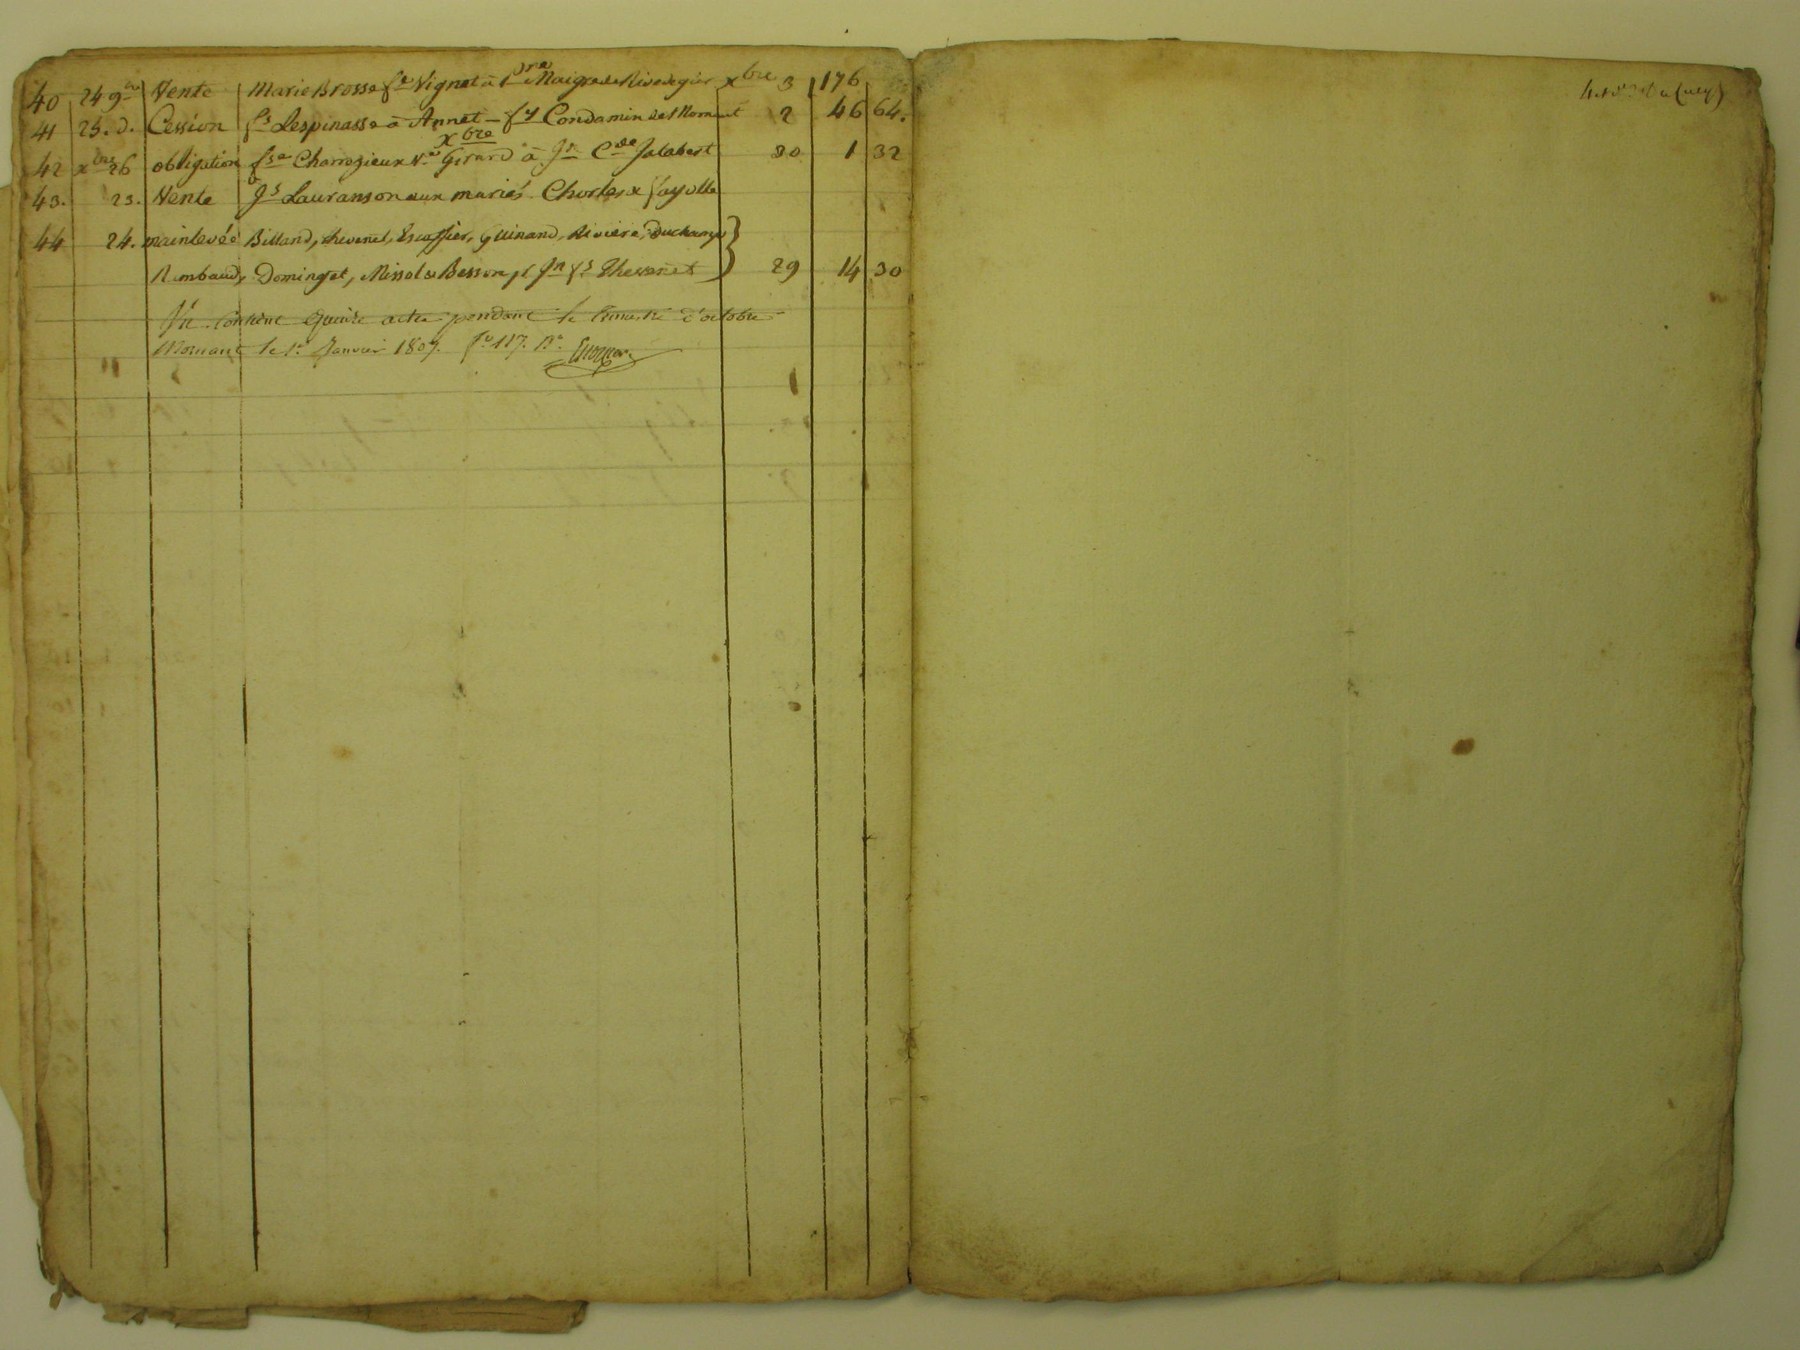 40 24 9bre Vente Marie Brosse fe Vignet à Pre Maigre de Rivedegier xbre 3 176
41 25. d. Cession fs Lespinasse à Annet - fs Condamin de Mornant 2 46 64.
xbre
42 xbre 26 obligation fse Charrozieux Ve Girard à Jn Cde Jalabert 30 1 32
43. 23. Vente Js Lauranson aux mariés Charles & fayolle
44 24. mainlevée Billand, thevenet, Escoffier, guinand, Riviere, Duchamp
Rambaud, Dominget, Missol & Besson, Jn fs Thevenet 29 14 30
Vu contenu quinze actes pendant le trimestre d'octobre
Mornant le 1er Janvier 1807. fo 117. Ro